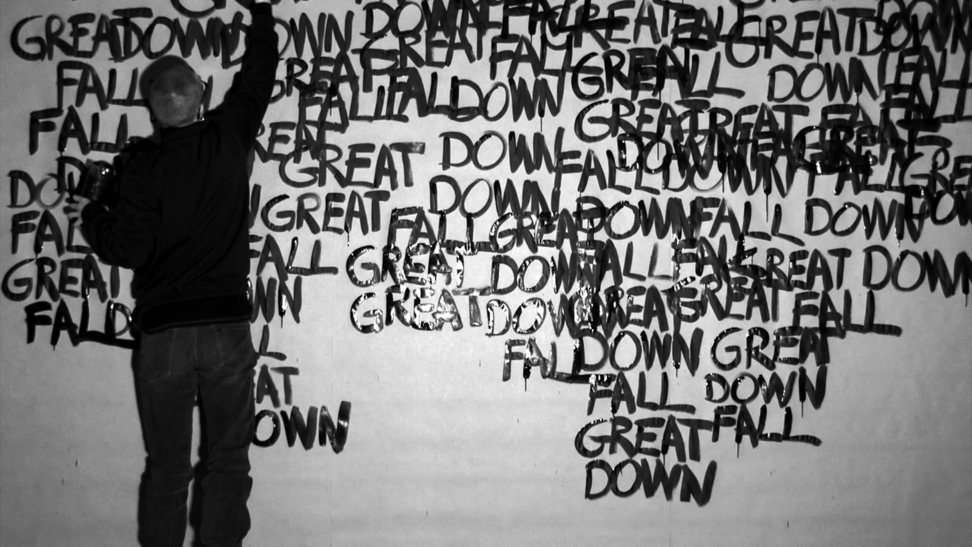 GREAT DOWN DOWN DOWN FALL GREAT FALL GREAT DOWN
FALL GREAT GREAT FALL GREAT FALL DOWN FALL
FALL FALL FALL DOWN GREAT GREAT FALL
GREAT GREAT DOWN FALL DOWN DOWN FALL GREAT
DOWN GREAT DOWN DOWN FALL DOWN DOWN
FALL FALL FALL GREAT FALL FALL GREAT DOWN
GREAT GREAT DOWN
FALL GREAT DOWN GREAT GREAT FALL
FALL DOWN GREAT
FALL DOWN
OWN GREAT FALL
DOWN